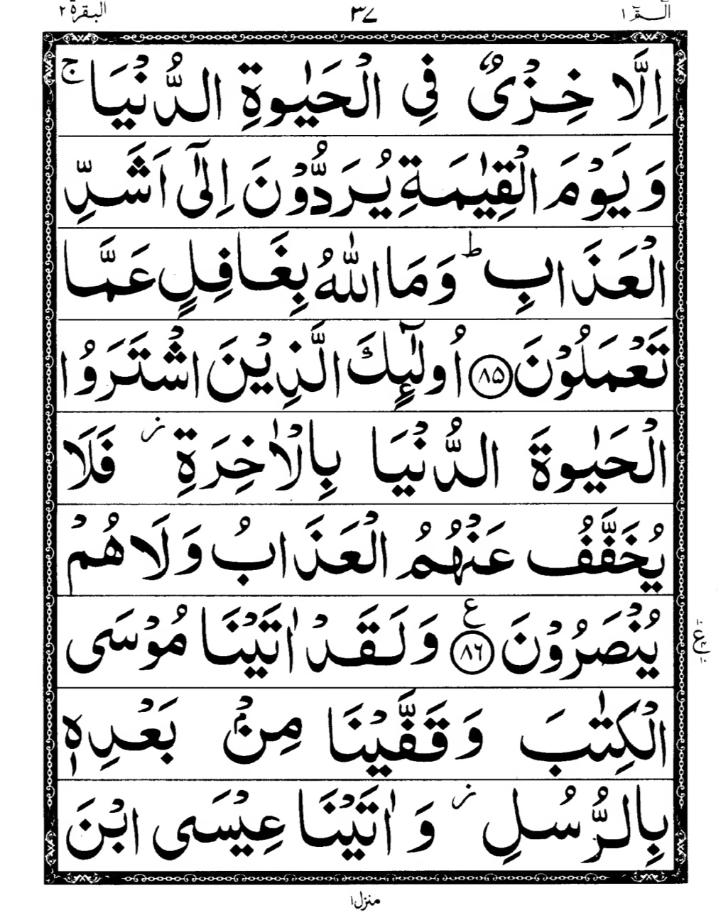 الٓمّٓ ١ ٣٧ البقرة ٢
اِلَّا خِزْیٌ فِی الْحَیٰوةِ الدُّنْیَا ۚ
وَیَوْمَ الْقِیٰمَةِ یُرَدُّوْنَ اِلٰۤی اَشَدِّ
الْعَذَابِ ؕ وَمَا اللّٰهُ بِغَافِلٍ عَمَّا
تَعْمَلُوْنَ ﴿۸۵﴾ اُولٰٓئِكَ الَّذِیْنَ اشْتَرَوُا
الْحَیٰوةَ الدُّنْیَا بِالْاٰخِرَةِ ؗ فَلَا
یُخَفَّفُ عَنْهُمُ الْعَذَابُ وَلَا هُمْ
یُنْصَرُوْنَ ﴿۸۶﴾ ع وَلَقَدْ اٰتَیْنَا مُوْسَی
الْكِتٰبَ وَقَفَّیْنَا مِنْۢ بَعْدِهٖ
بِالرُّسُلِ ؗ وَاٰتَیْنَا عِیْسَی ابْنَ
منزل ١